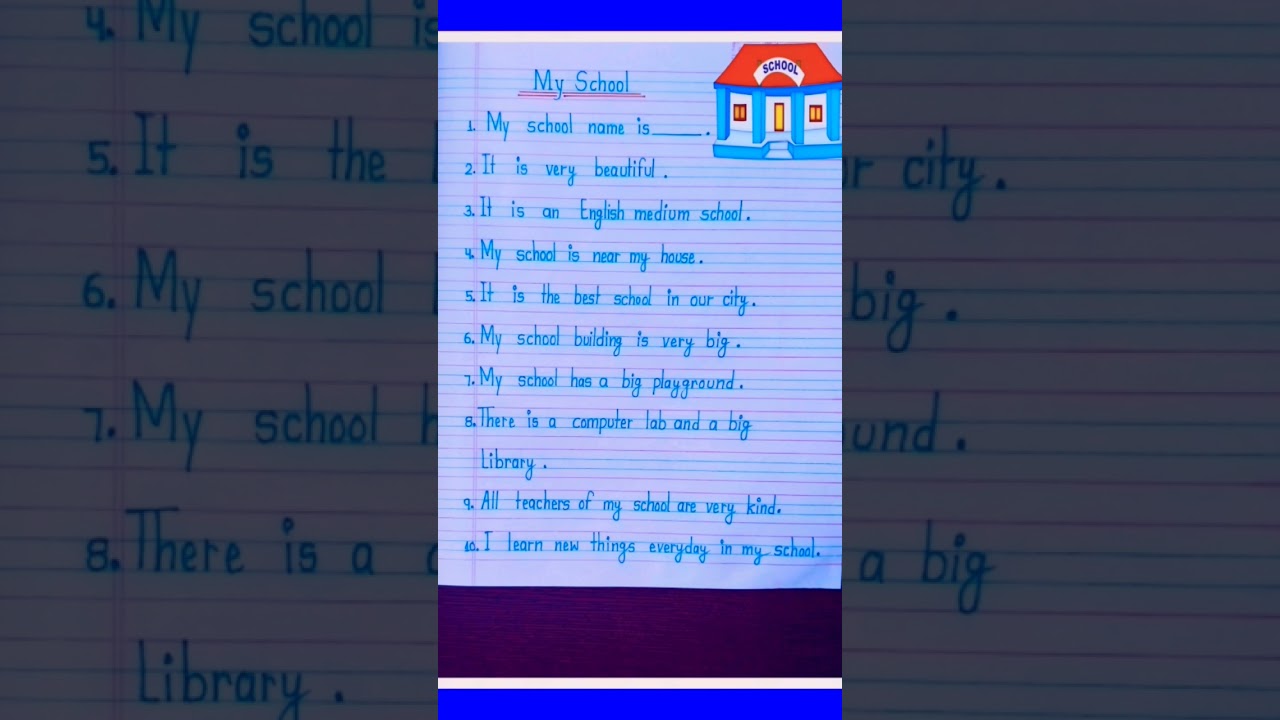 My School
SCHOOL
1. My school name is_____.
2. It is very beautiful.
3. It is an English medium school.
4. My school is near my house.
5. It is the best school in our city.
6. My school building is very big.
7. My school has a big playground.
8. There is a computer lab and a big
Library.
9. All teachers of my school are very kind.
10. I learn new things everyday in my school.
4. My school is
5. It is the
r city.
6. My school
big.
7. My school h
und.
8. There is a
a big
Library.